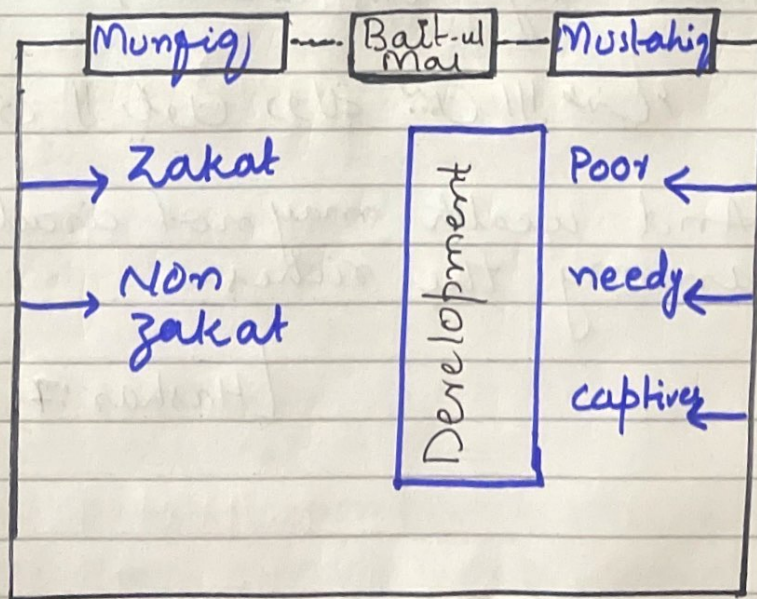 Munfiq
Bait-ul
Mal
Mustahiq
Zakat
Non
zakat
Development
Poor
needy
captives